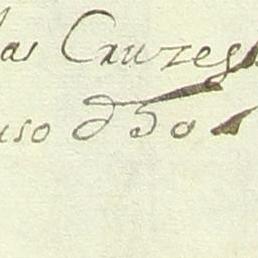 las Cruzes
uso d 50